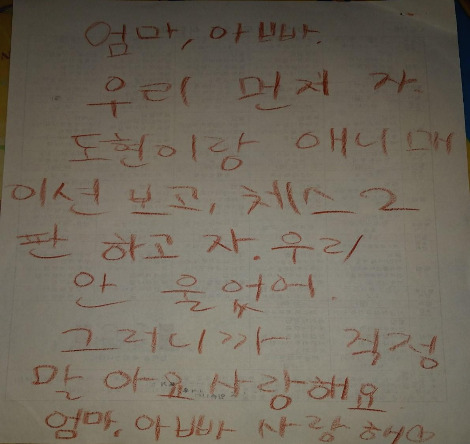 엄마, 아빠.
우리 먼저 자.
도현이랑 애니매
이션 보고, 체스 2
판 하고 자. 우리
안 울없어.
그러니까 걱정
말 아요 사랑해요
엄마, 아빠 사랑해♡